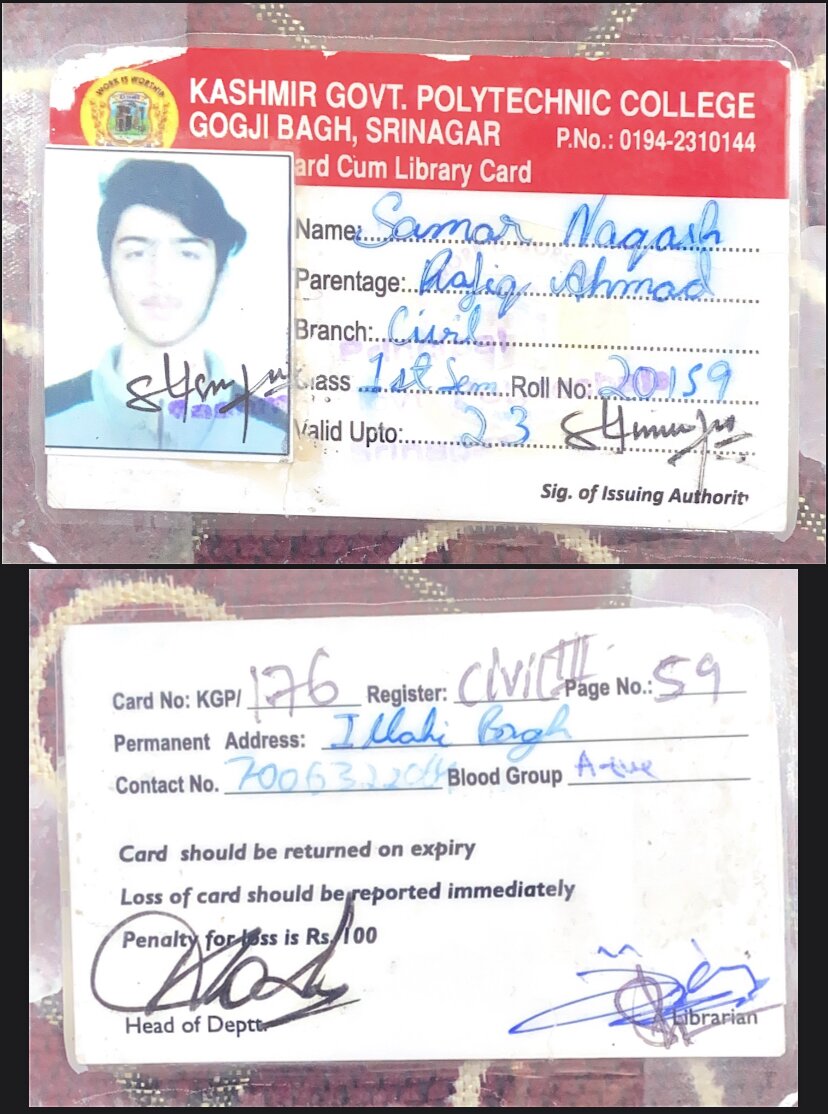 WORK IS WORSHIP
KASHMIR GOVT. POLYTECHNIC COLLEGE
GOGJI BAGH, SRINAGAR P.No.: 0194-2310144
ard Cum Library Card
Name: Samar Naqash
Parentage: Rafiq Ahmad
Branch: Civil
Class 1st Sem Roll No: 20159
Valid Upto: 23
Sig. of Issuing Authorit
Card No: KGP/ 176 Register: Civil III Page No.: 59
Permanent Address: Illahi Bagh
Contact No. Blood Group A+ive
Card should be returned on expiry
Loss of card should be reported immediately
Penalty for loss is Rs. 100
Head of Deptt.
Librarian